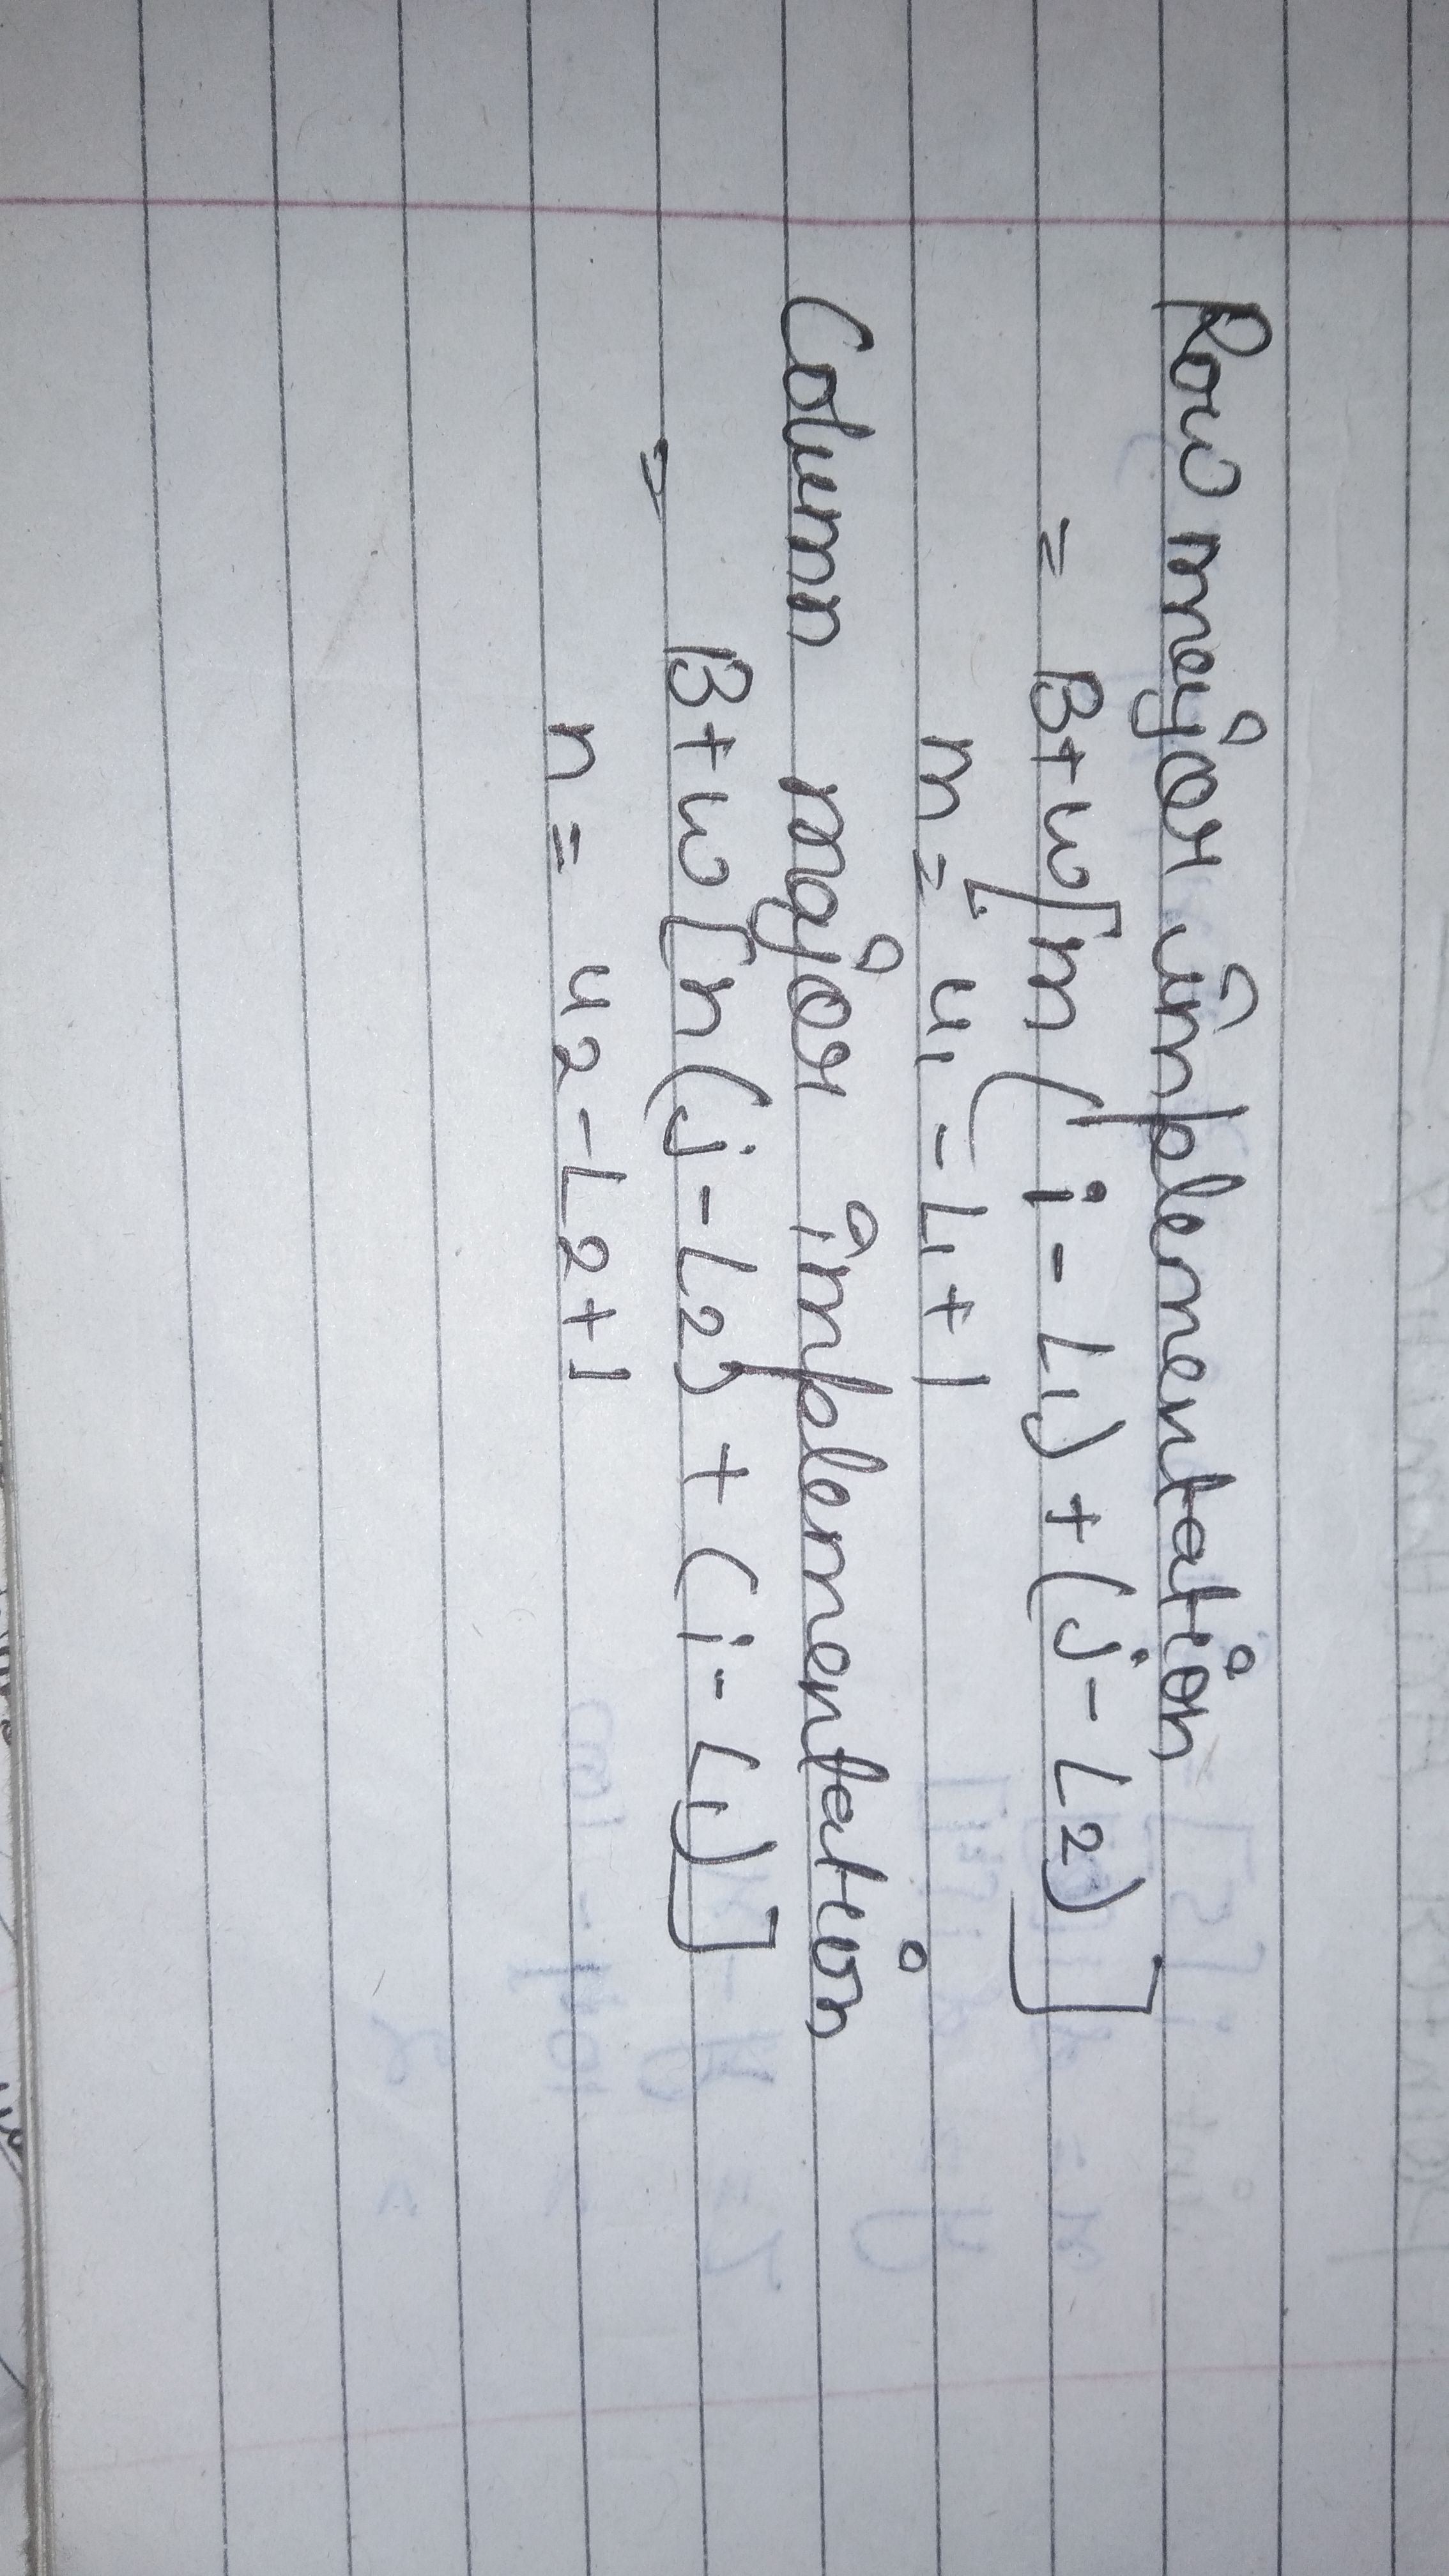 Row major implementation
= B+w[m(i-L1)+(j-L2)]
m = u1-L1+1
Column major implementation
= B+w[n(j-L2)+(i-L1)]
n = u2-L2+1